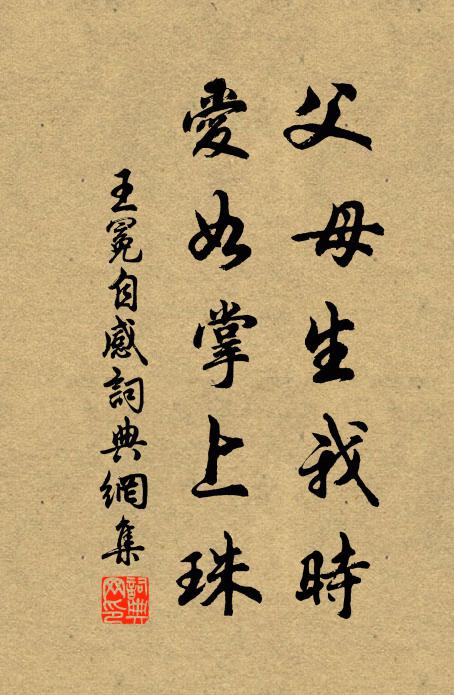 父母生我時
愛如掌上珠
王冕自感詞典網集
詞典網印